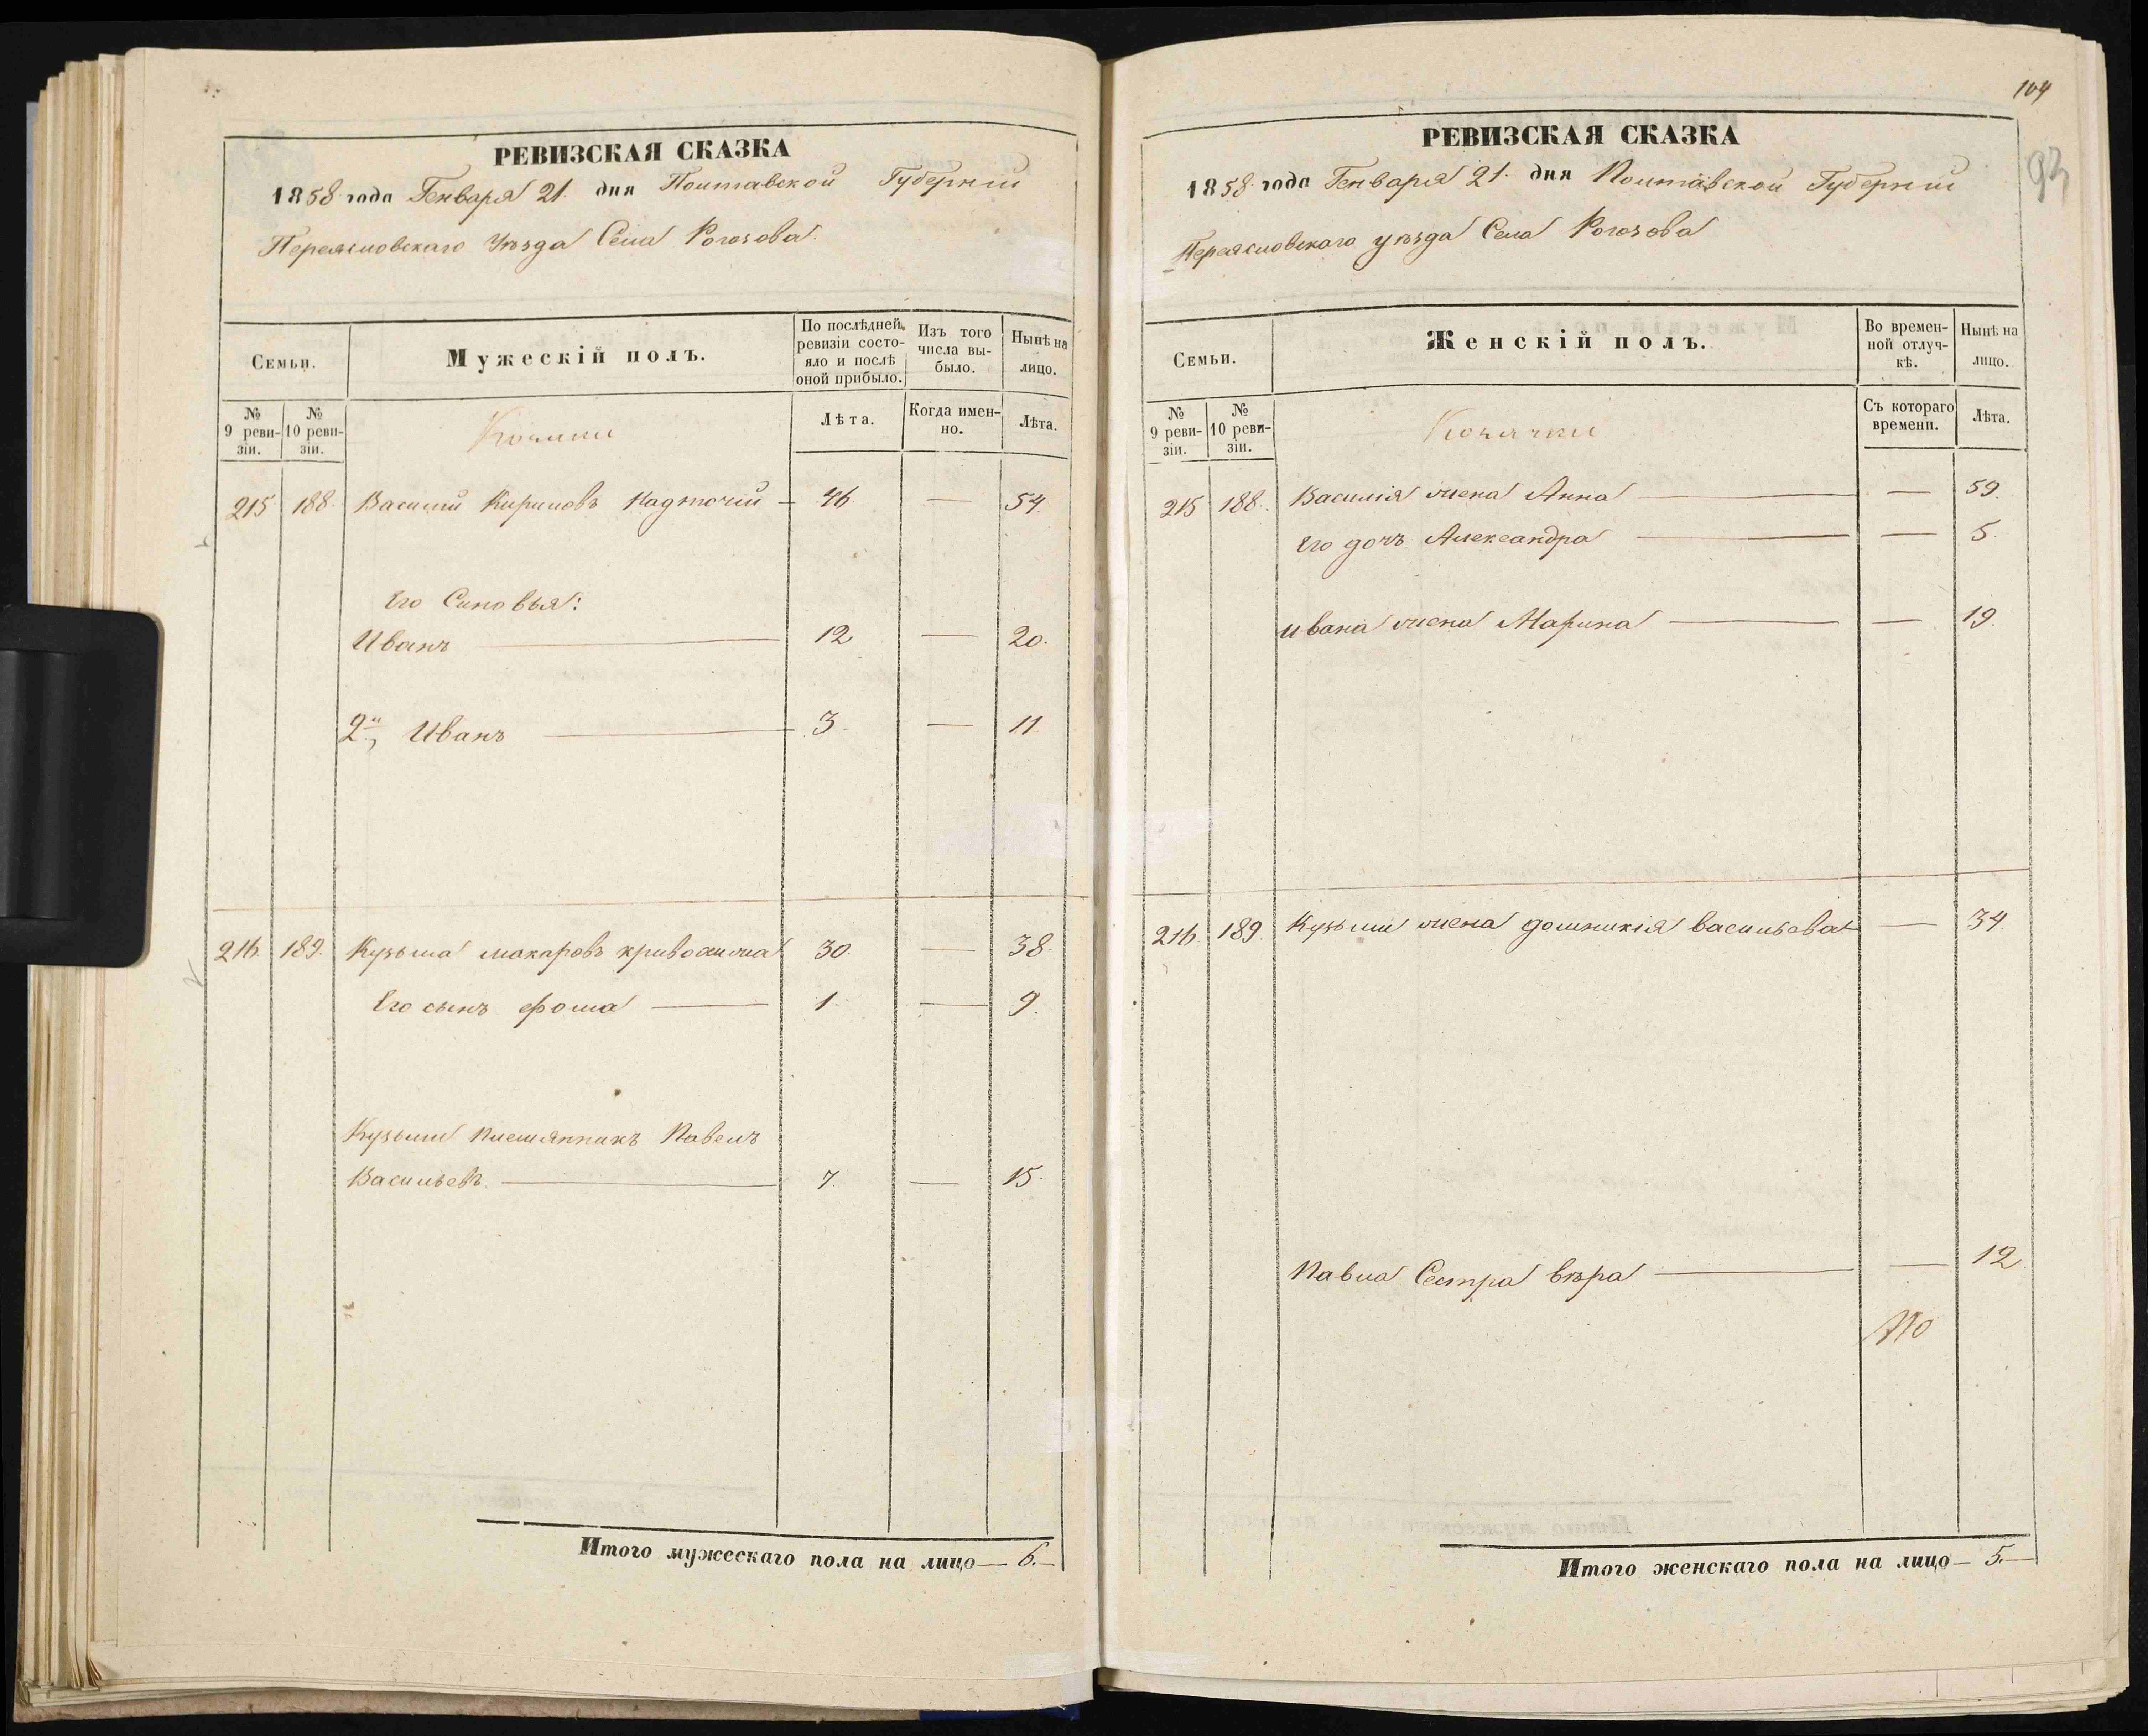 РЕВИЗСКАЯ СКАЗКА
1858 года Генваря 21. дня Полтавской Губерніи
Переясловскаго Уѣзда Села Рогозова.
Семьи.
Мужескій полъ.
По послѣдней ревизіи состояло и послѣ оной прибыло.
Изъ того числа выбыло.
Нынѣ на лицо.
№ 9 ревизіи.
№ 10 ревизіи.
Козаки
Лѣта.
Когда именно.
Лѣта.
215 188. Василій Кириловъ Надточій — 46 — 54.
Его Синовья:
Иванъ — 12 — 20.
2й, Иванъ — 3. — 11.
216. 189. Кузьма макаровъ 30. — 38.
Его сынъ фома — 1. — 9.
Кузьми племянникъ Павелъ
Васильевъ. — 7. — 15.
Итого мужескаго пола на лицо — 6. —
104
93
РЕВИЗСКАЯ СКАЗКА
1858. года Генваря 21. дня Полтавской Губерніи
Переясловскаго уѣзда Села Рогозова
Семьи.
Женскій полъ.
Во временной отлучкѣ.
Нынѣ на лицо.
№ 9 ревизіи.
№ 10 ревизіи.
Козачки
Съ котораго времени.
Лѣта.
215 188. Василія жена Анна — — 59.
Его дочъ Александра — — 5.
ивана жена Марина — — 19.
216. 189. Кузьми жена домникія васильева — 34.
Павла Сестра вѣра — — 12
Итого женскаго пола на лицо — 5. —